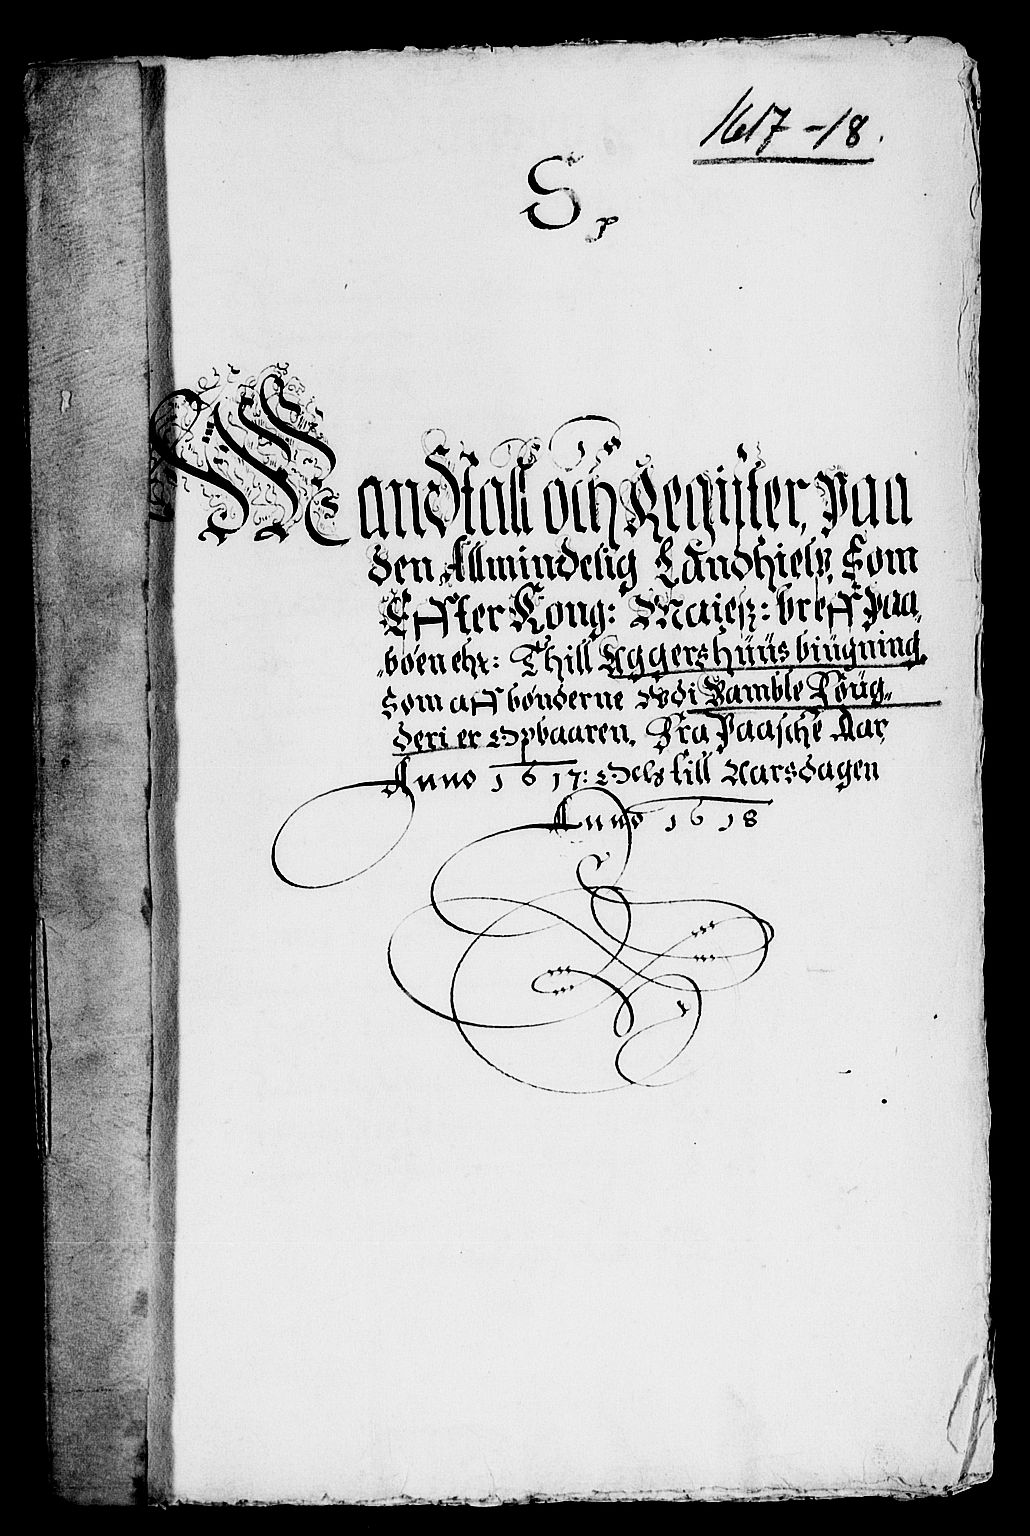 1617-18.
S
Mandtall och Register, paa
den Allmindelig Landhielp, Som
Effter Kong: Maiest: breff paa„
„böen ehr: Thill Aggershuus biugning
Som aff bönderne Wdi Bamble Foug„
deri er Opbaaren, Fra Paasche Aar
Anno 1617: Och till Aarsdagen
Anno 1618